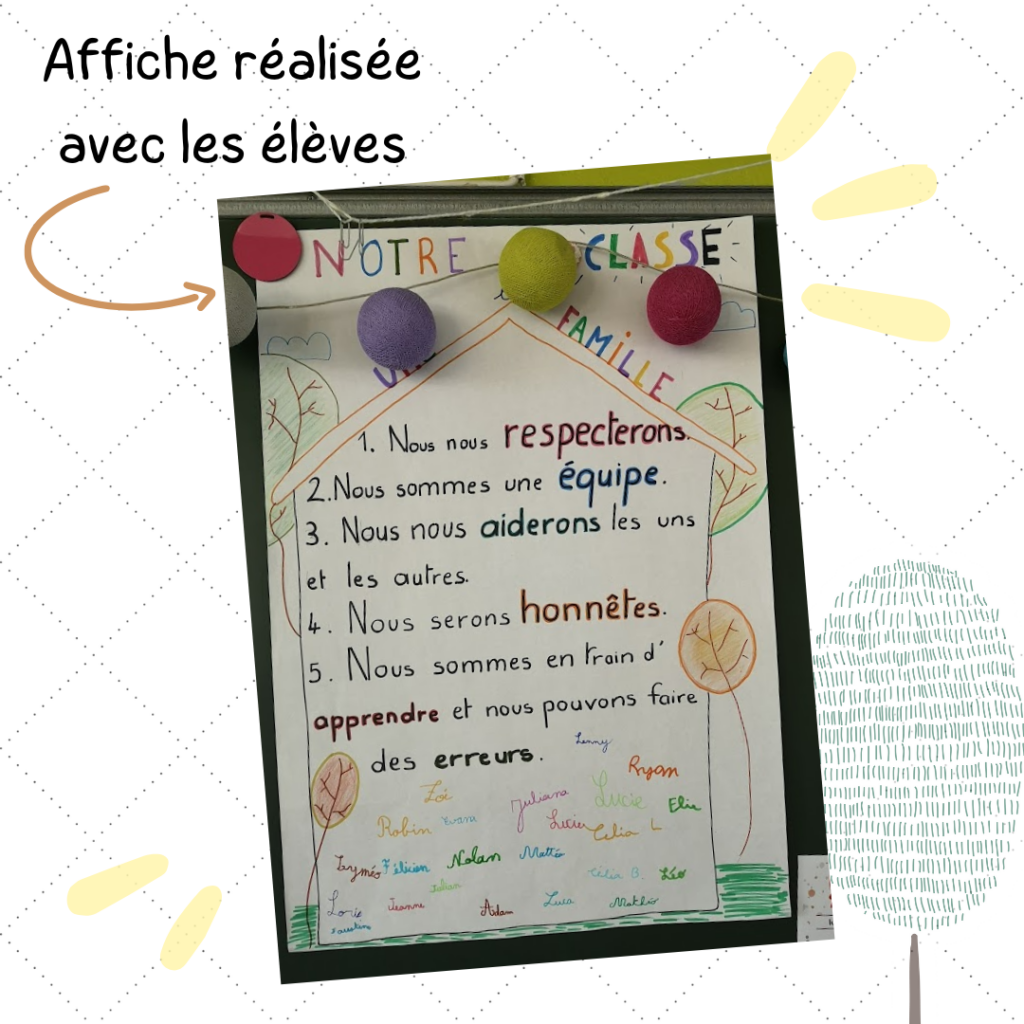 Affiche réalisée
avec les élèves
NOTRE CLASSE
FAMILLE
1. Nous nous respecterons.
2. Nous sommes une équipe.
3. Nous nous aiderons les uns
et les autres.
4. Nous serons honnêtes.
5. Nous sommes en train d'
apprendre et nous pouvons faire
des erreurs.
Lenny
Ryan
Zoé Juliana Lucie Elie
Robin Evane Lucien Celia L
Tyméo Félicien Nolan Mattéo Célia B. Léo
Lorie Jeanne Adam Luca Mathéo
Faustine